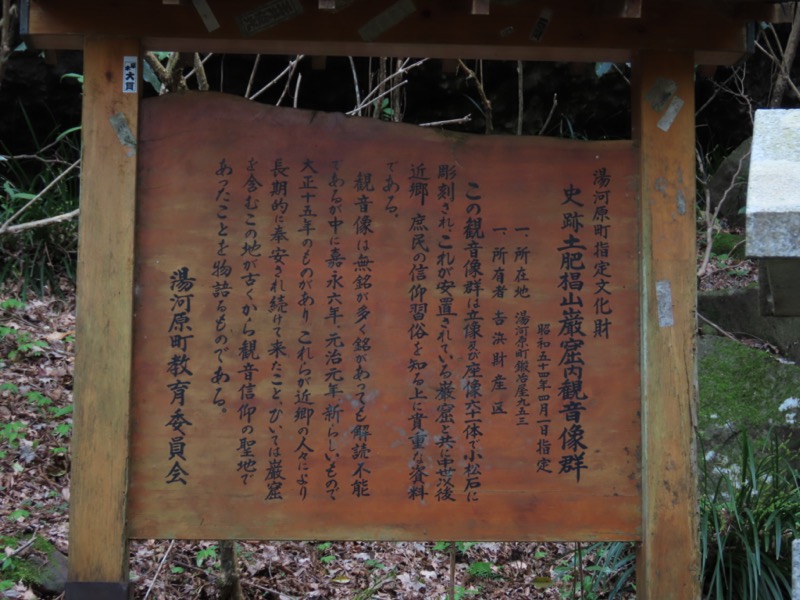 湯河原町指定文化財
史跡土肥椙山巌窟内観音像群
昭和五十四年四月一日指定
一、所在地 湯河原町鍛冶屋九五三
一、所有者 吉浜財産区
この観音像群は立像及び座像六十一体で小松石に
彫刻され、これが安置されている巌窟と共に中世以後
近郷、庶民の信仰習俗を知る上に貴重な資料
である。
観音像は無銘が多く銘があっても解読不能
であるが中に嘉永六年、元治元年、新らしいもので
大正十五年のものがあり、これらが近郷の人々により
長期的に奉安され続けて来たことひいては巌窟
を含むこの地が古くから観音信仰の聖地で
あったことを物語るものである。
湯河原町教育委員会